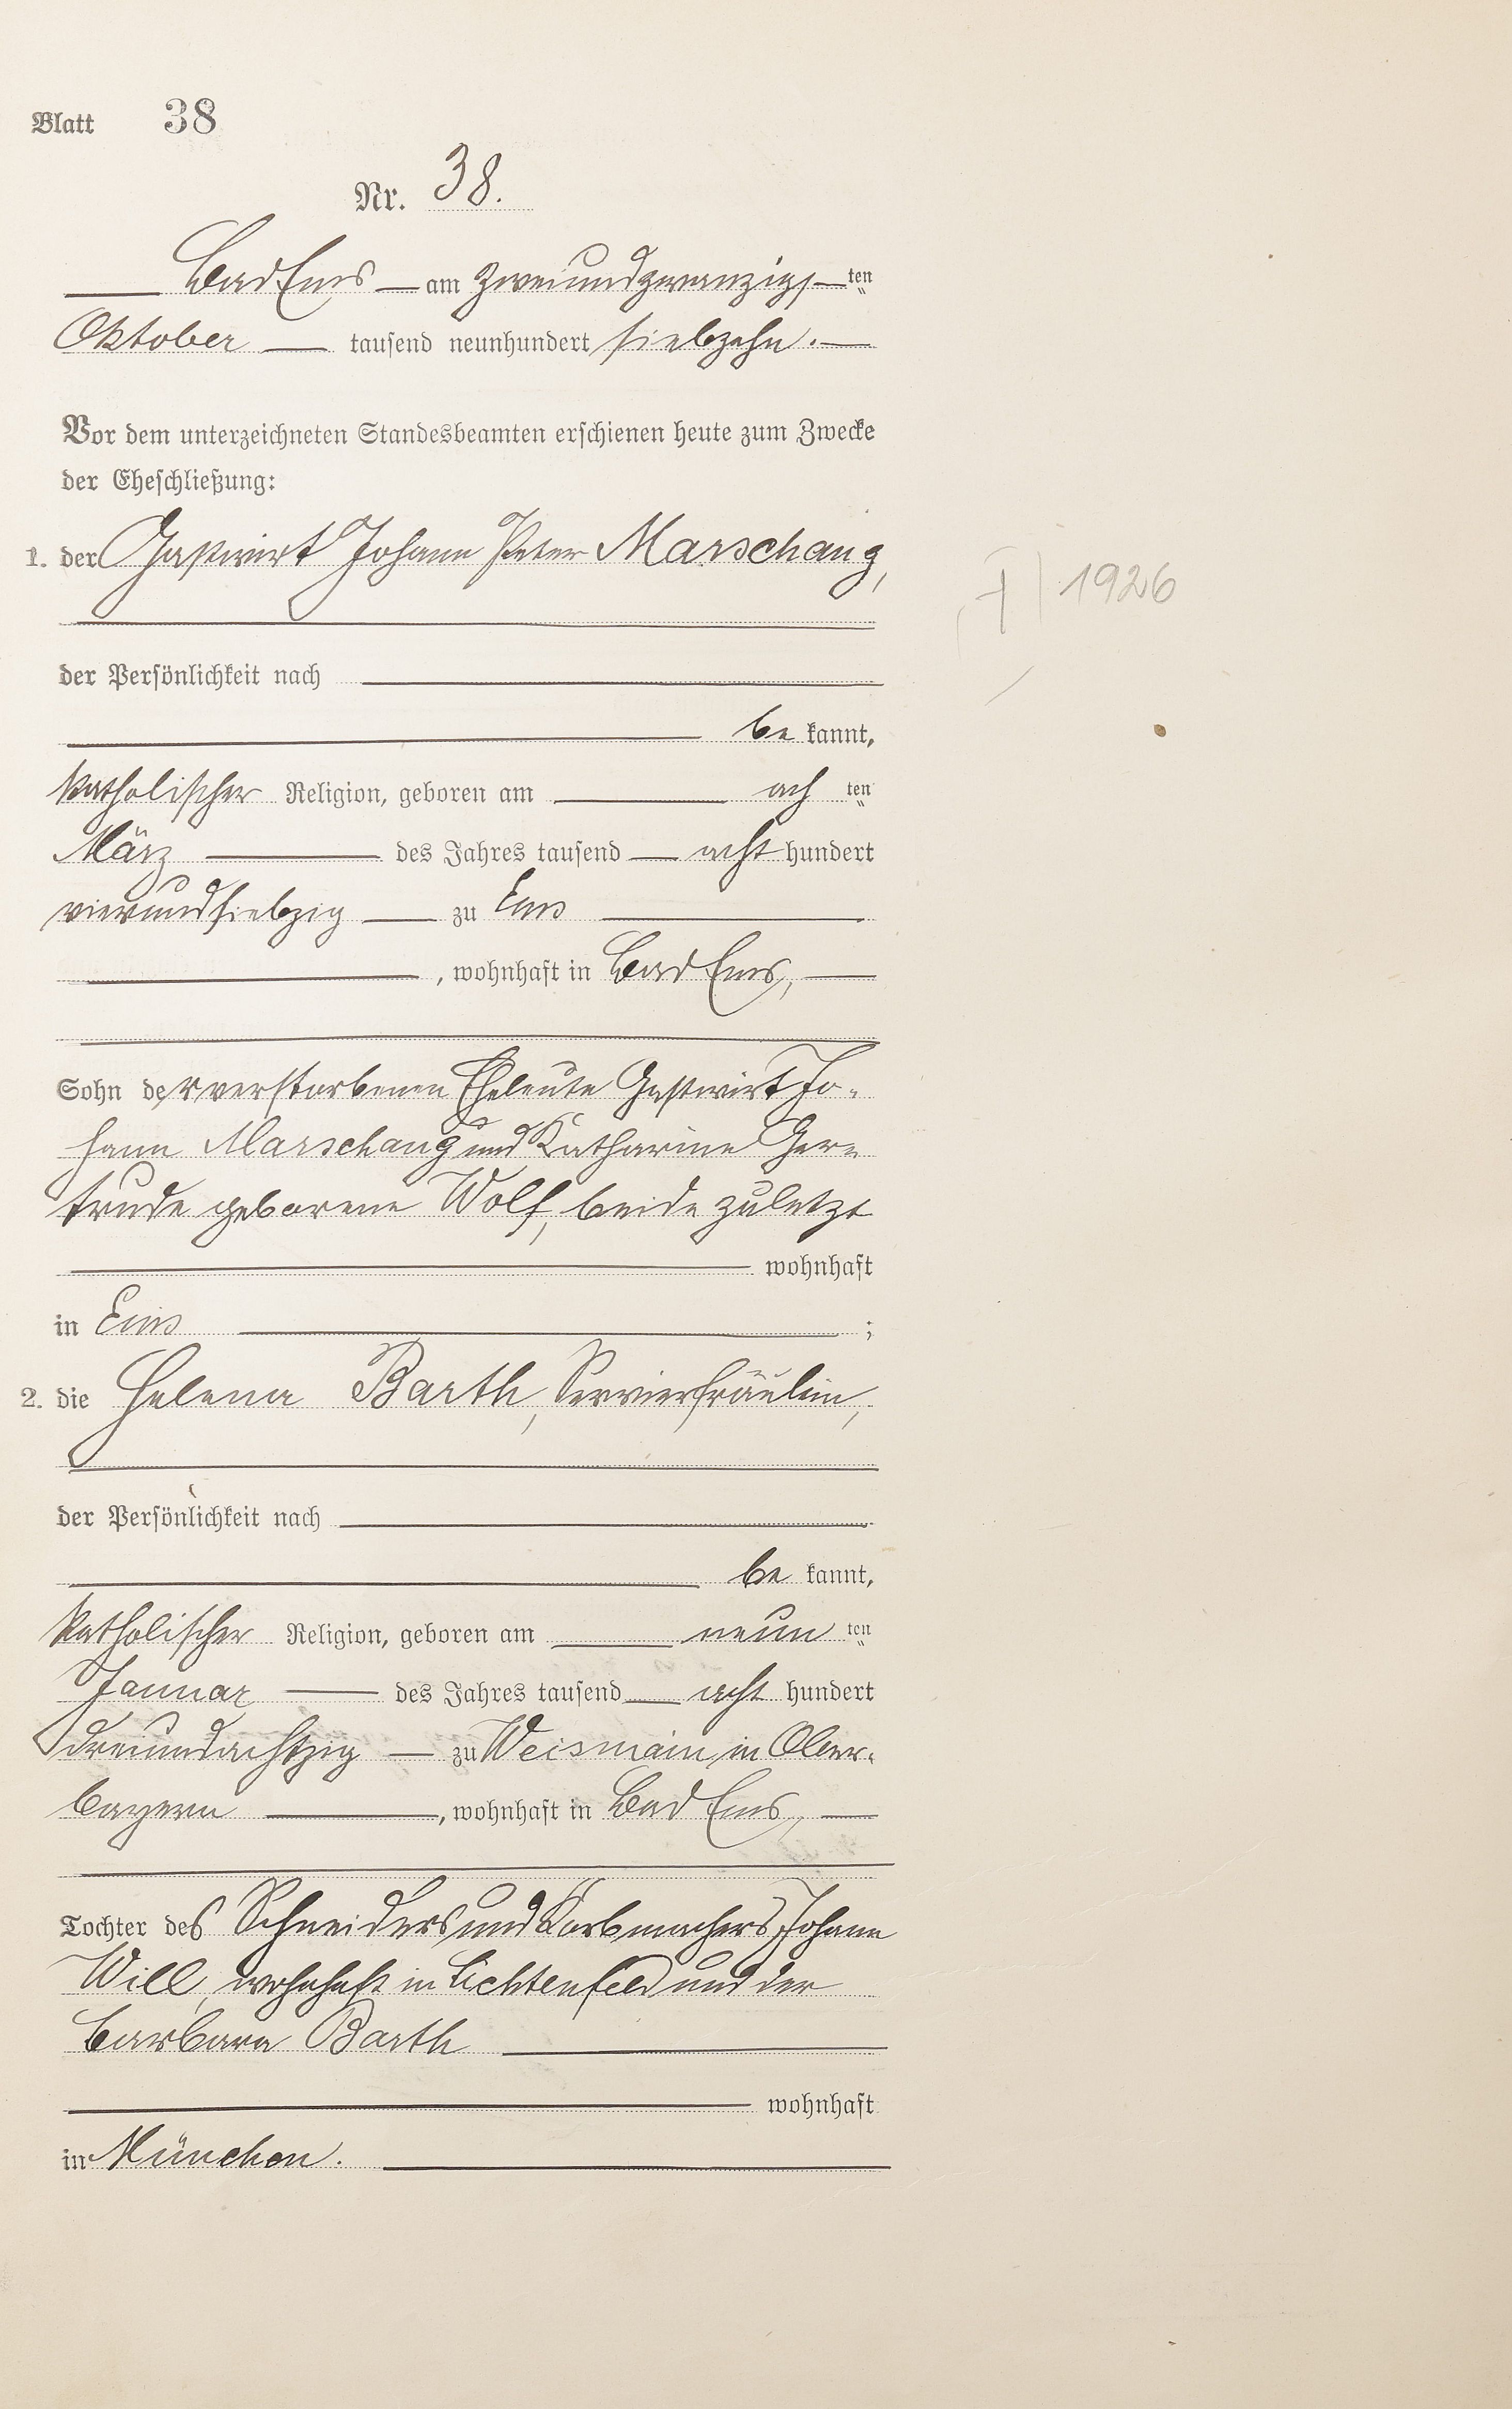 Blatt 38
Nr. 38.
Bad Ems am zweiundzwanzigs ten
Oktober tausend neunhundert siebzehn.
Vor dem unterzeichneten Standesbeamten erschienen heute zum Zwecke
der Eheschließung:
1. der Gastwirt Johann Peter Marschang,
† 1926
der Persönlichkeit nach
be kannt,
katholischer Religion, geboren am ach ten
März des Jahres tausend acht hundert
vierundsiebzig zu Ems
, wohnhaft in Bad Ems,
Sohn der verstorbenen Eheleute Gastwirt Jo-
hann Marschang und Katharine Ger-
trude geborene Wolf, beide zuletzt
wohnhaft
in Ems ;
2. die Helena Barth, Servierfräulein,
der Persönlichkeit nach
be kannt,
katholischer Religion, geboren am neun ten
Januar des Jahres tausend acht hundert
dreiundachtzig zu Weismain in Ober-
bayern , wohnhaft in Bad Ems,
Tochter des Schneiders und Korbmachers Johann
Will, wohnhaft in Lichtenfeld und der
Barbara Barth
wohnhaft
in München.